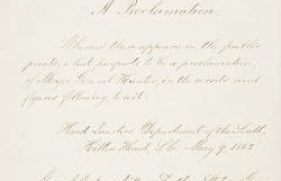 A Proclamation.
Whereas there appears in the public
prints, what purports to be a proclamation,
of Major General Hunter, in the words and
figures following, to wit.
Head Quarters Department of the South,
Hilton Head, S.C. May 9, 1862